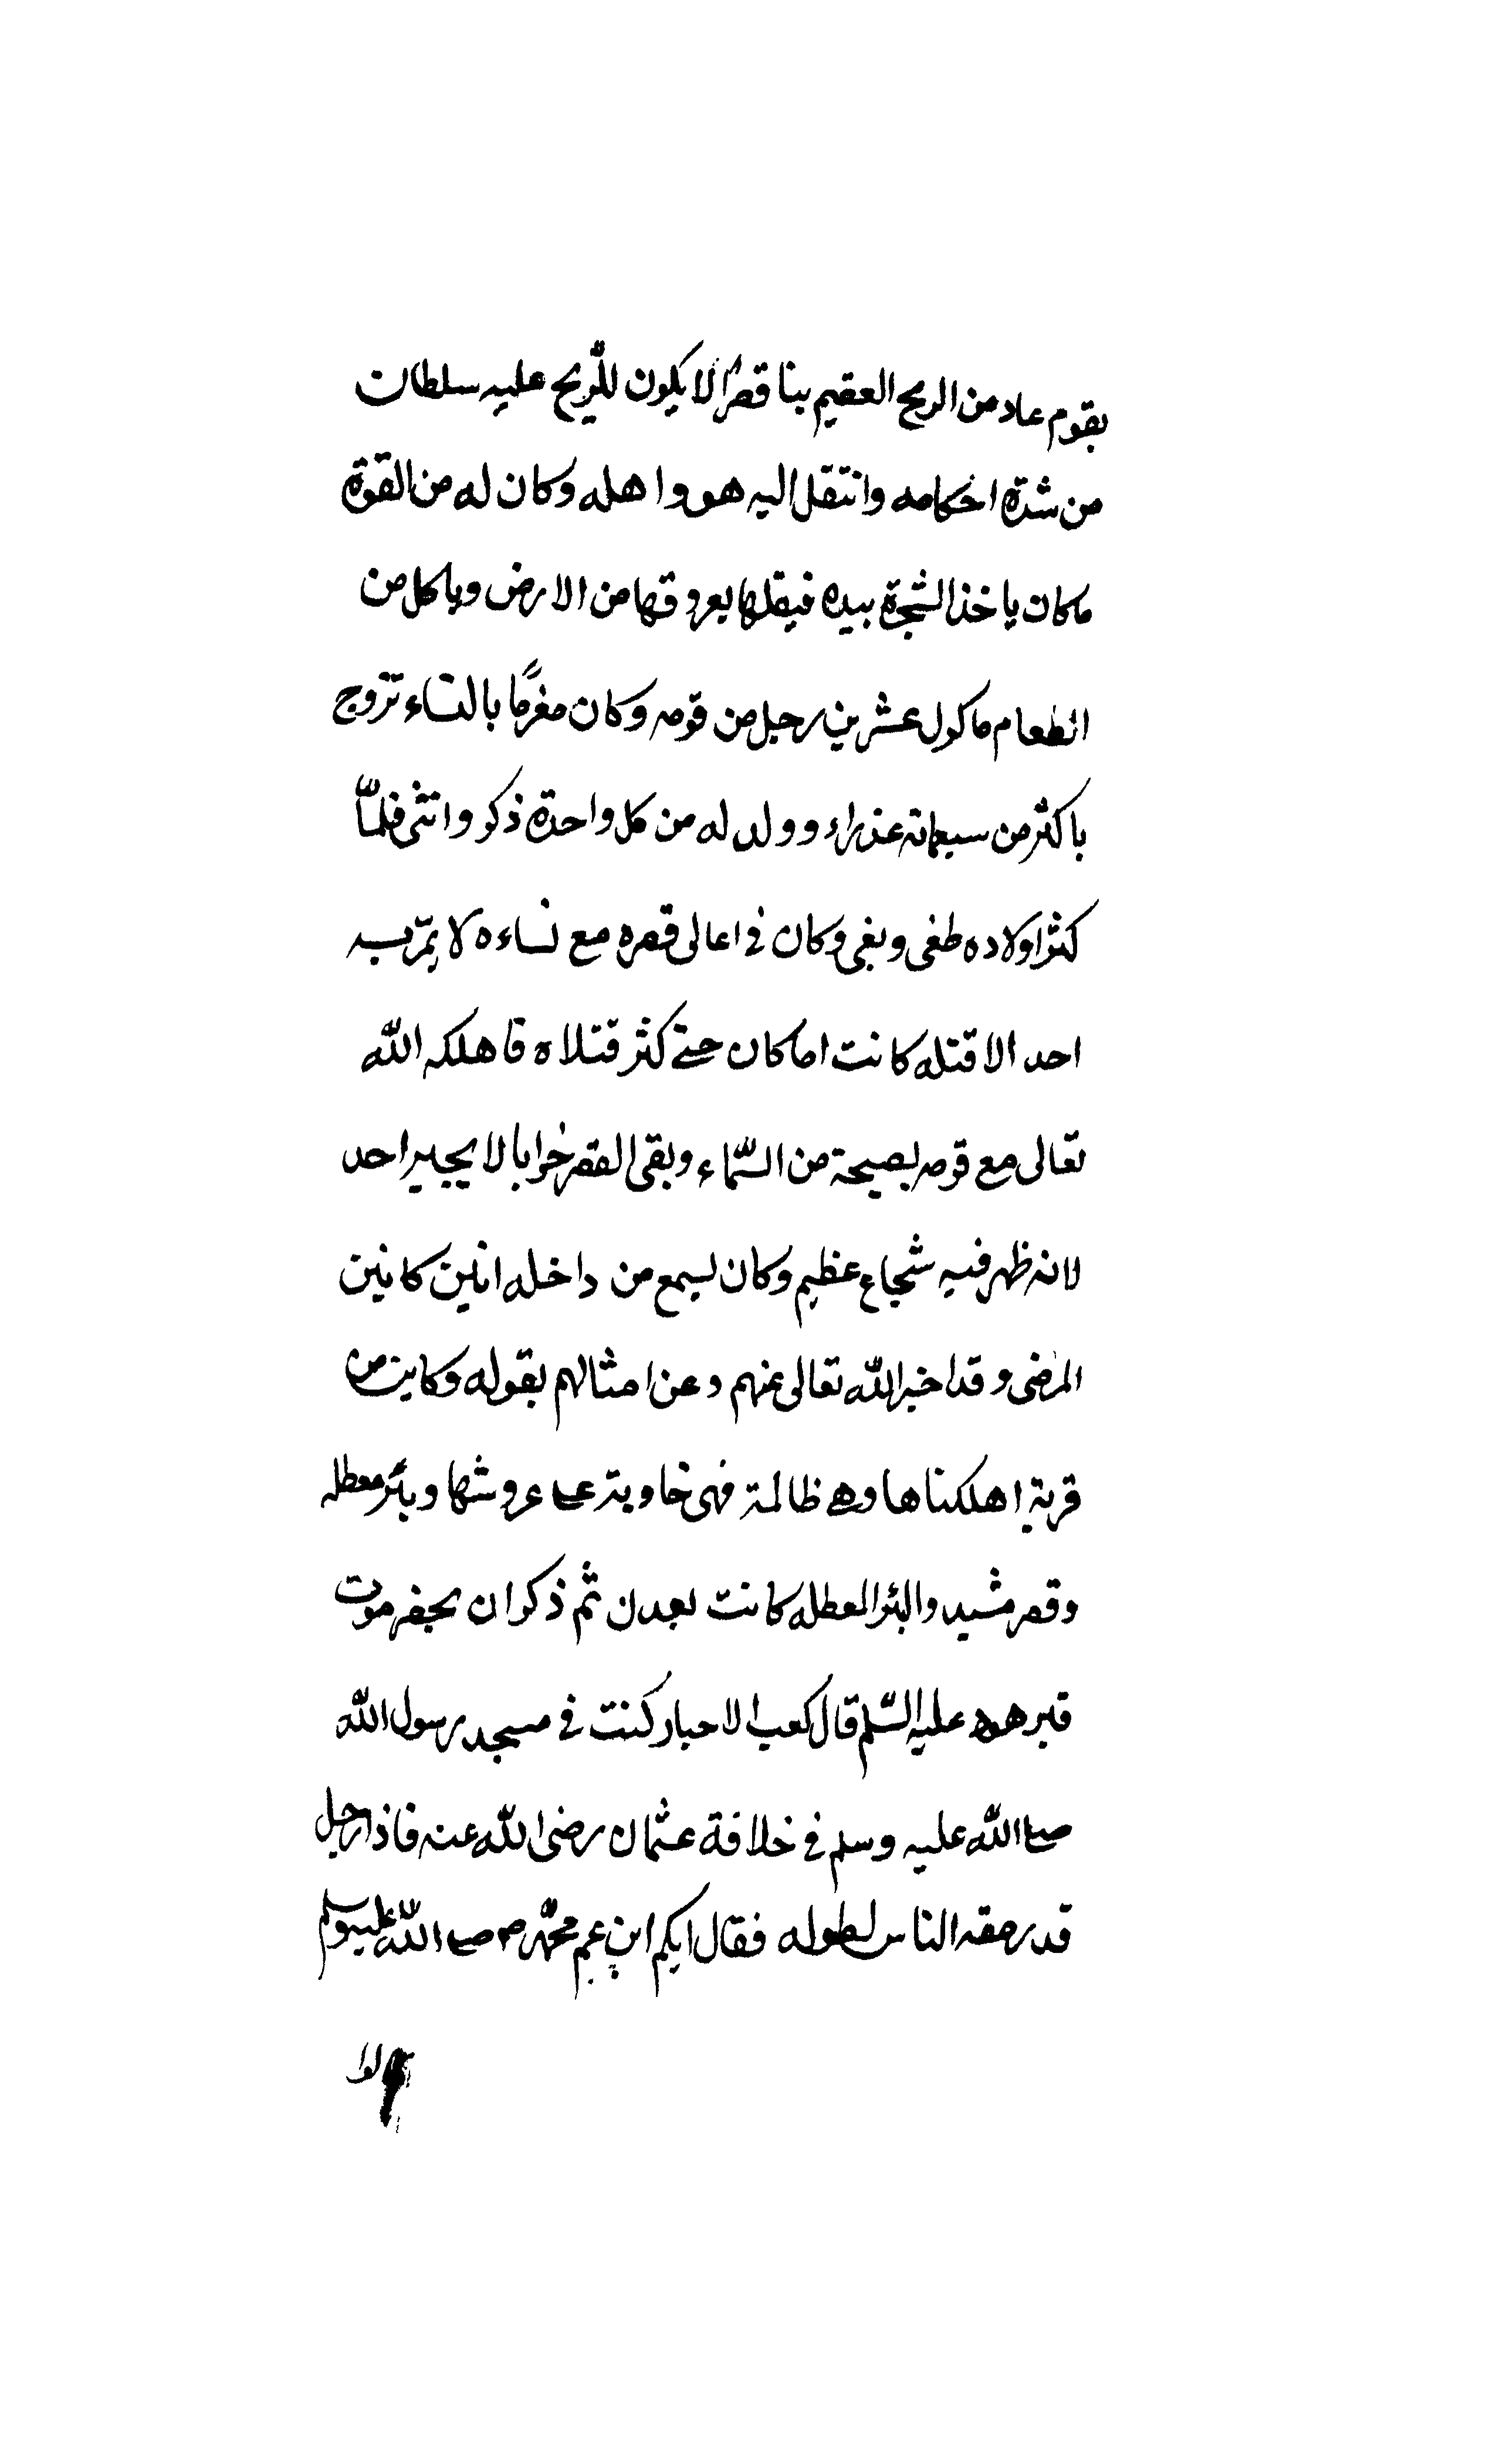 بقوم عاد من الريح العقيم بنا قصرًا لا يكون للرّيح عليه سلطان
من شدة احكامه وانتقل اليه هو واهله وكان له من القوة
ما كان ياخذ الشجرة بيده فيقلها بعروقها من الارض وياكل من
الطعام ماكول عشرين رجل من قومه وكان مغرمًا بالنساء تزوج
باكثر من سبعمائه عذراء وولد له من كل واحدة ذكر وانثى فلمّا
كثر اولاده طغى وبغى وكان في اعالى قصره مع نساءه لا يمرّ به
احد الا قتله كانت اما كان حتى كثر قتلاه فاهلكه الله
تعالى مع قومه بصيحة من السّماء وبقى القصر خرابا لا يجير احد
لانه ظهر فيه شجاع عظيم وكان يسمع من داخله انين كانين
المرضى وقد اخبر الله تعالى عنهم وعن امثالهم بقوله وكاين من
قرية اهلكناها وهي ظالمة فهى خاوية على عروشها وبئر معطله
وقصر مشيد والبئر المعطله كانت بعدن ثم ذكر ان بحضرموت
قبر هود عليه السّلم قال كعب الاحبار كنت في مسجد رسول الله
صلى الله عليه وسلم في خلافة عثمان رضى الله عنه فاذا رجل
قد رمقه الناس لطوله فقال ايكم ابن عم محمّد صلى الله عليه وسلم